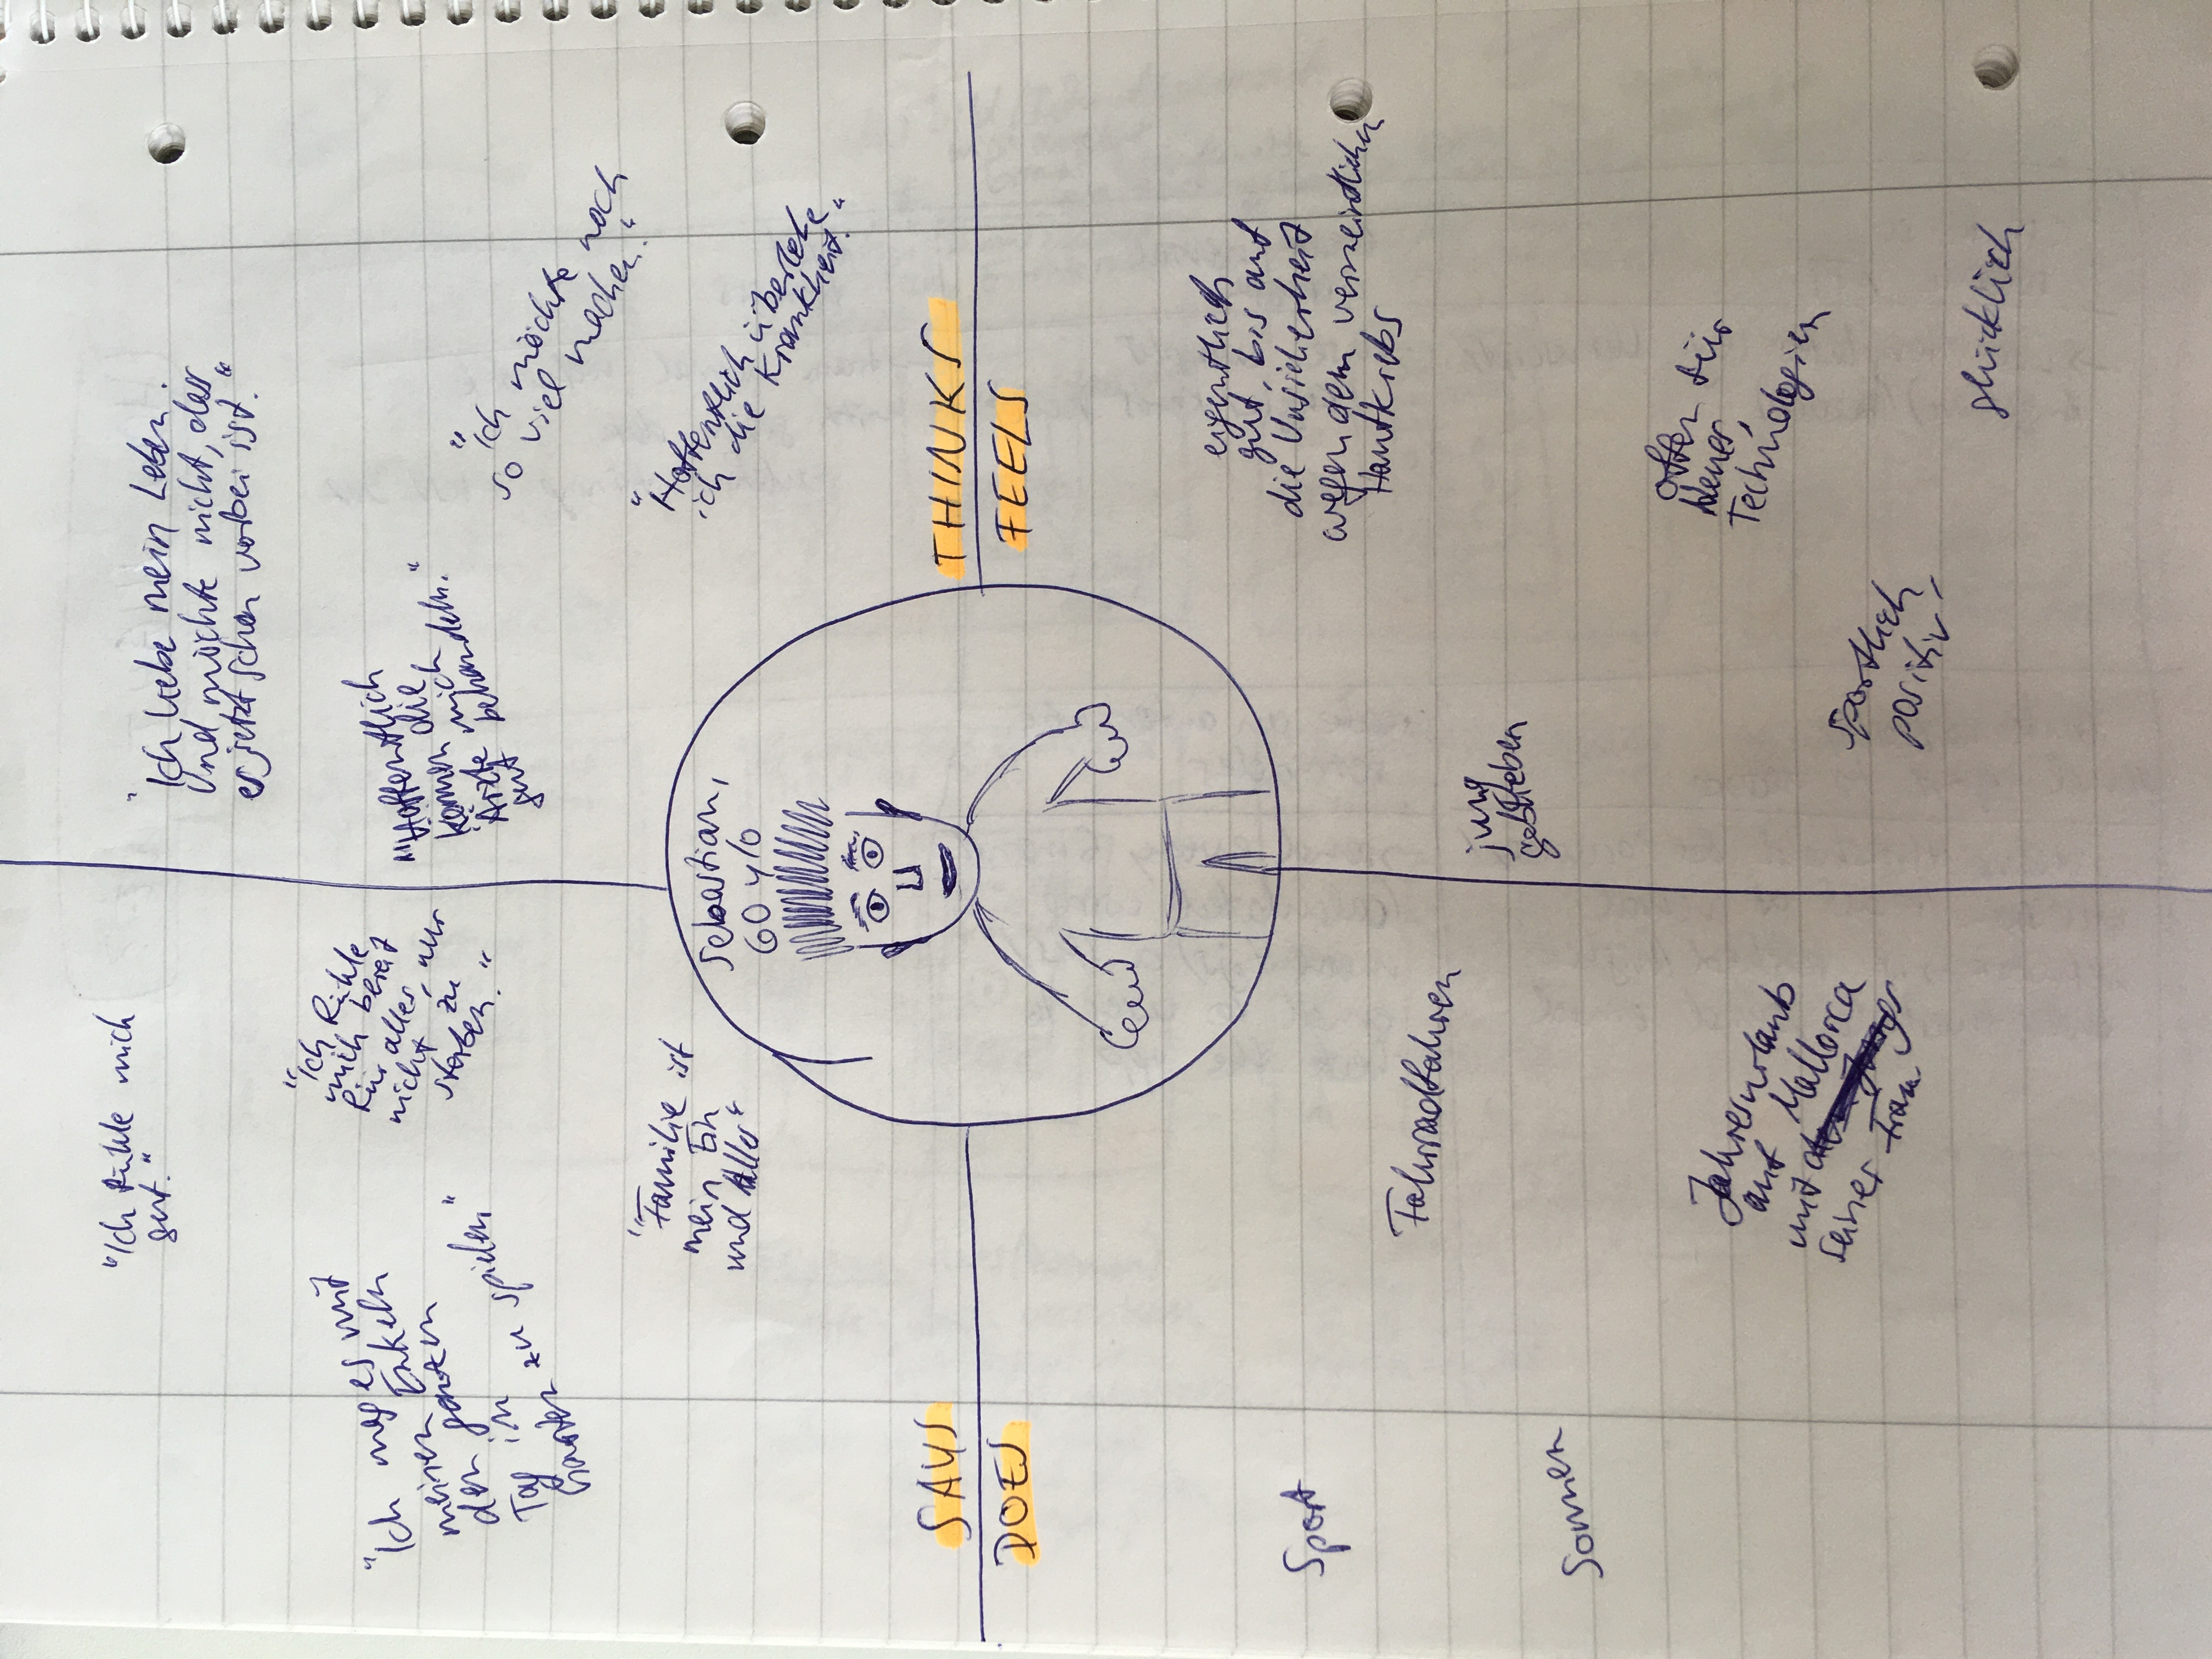 "Ich fühle mich
gut."
"Ich mag es mit
meinen Enkeln
den ganzen
Tag im
Garten zu spielen"
"Ich fühle
mich bereit
für alles, nur
nicht zu
sterben."
"Familie ist
mein Ein
und Alles"
"Ich liebe mein Leben.
Und möchte nicht, dass
es jetzt schon vorbei ist."
"Hoffentlich
können die
Ärzte mich
gut behandeln."
"Ich möchte noch
so viel machen."
"Hoffentlich überlebe
ich die Krankheit."
Sebastian,
60 y/o
SAYS
THINKS
DOES
FEELS
Sport
Fahrradfahren
Sonnen
Jahresurlaub
auf Mallorca
mit
seiner Frau
eigentlich
gut, bis auf
die Unsicherheit
wegen dem vermeintlichen
Hautkrebs
jung
geblieben
offen für
Neues,
Technologien
sportlich,
positiv
glücklich